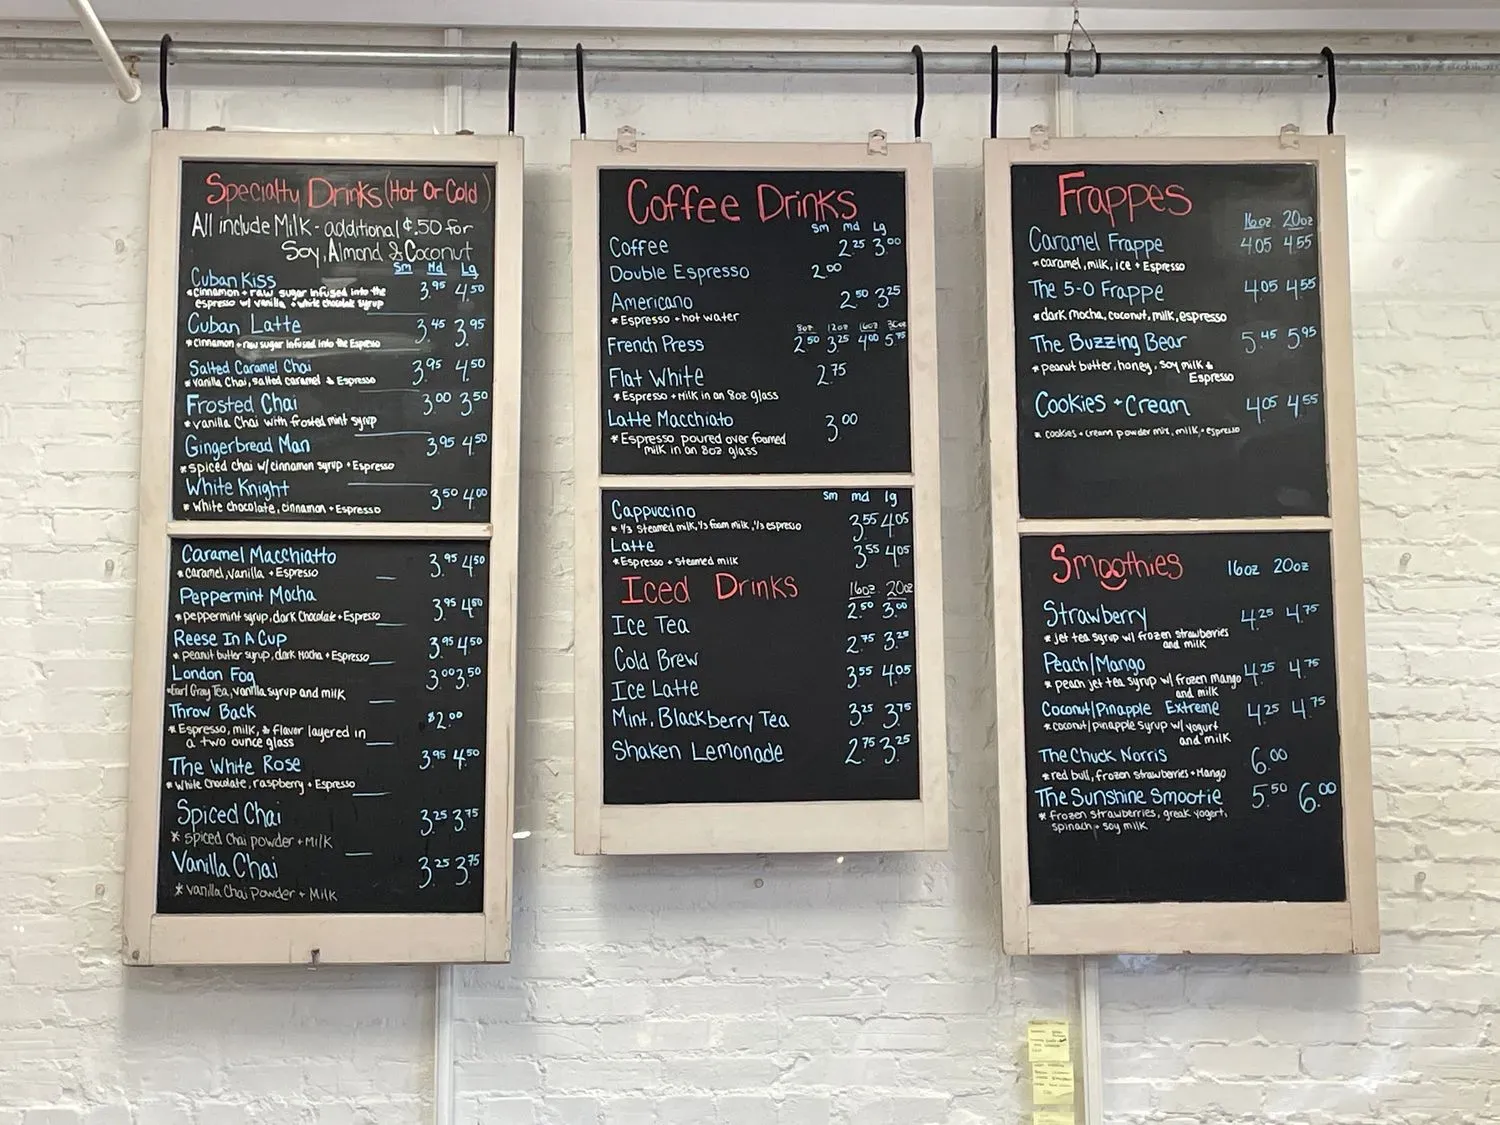 Specialty Drinks (Hot Or Cold)
All include Milk - additional ¢.50 for
Soy, Almond & Coconut
Sm Md Lg
Cuban Kiss 3.95 4.50
*cinnamon + raw sugar infused into the
espresso w/ vanilla + white chocolate syrup
Cuban Latte 3.45 3.95
*cinnamon + raw sugar infused into the Espresso
Salted Caramel Chai 3.95 4.50
*vanilla Chai, salted caramel & Espresso
Frosted Chai 3.00 3.50
*vanilla Chai with frosted mint syrup
Gingerbread Man 3.95 4.50
*spiced chai w/ cinnamon syrup + Espresso
White Knight 3.50 4.00
*White chocolate, cinnamon + Espresso
Caramel Macchiatto 3.95 4.50
*caramel, vanilla + Espresso
Peppermint Mocha 3.95 4.50
*peppermint syrup, dark Chocolate + Espresso
Reese In A Cup 3.95 4.50
*peanut butter syrup, dark Mocha + Espresso
London Fog 3.00 3.50
*Earl Gray Tea, vanilla syrup and milk
Throw Back $2.00
*Espresso, milk, & flavor layered in
a two ounce glass
The White Rose 3.95 4.50
*White Chocolate, raspberry + Espresso
Spiced Chai 3.25 3.75
*spiced Chai powder + Milk
Vanilla Chai 3.25 3.75
*vanilla Chai Powder + Milk
Coffee Drinks
Sm md Lg
Coffee 2.25 3.00
Double Espresso 2.00
Americano 2.50 3.25
*Espresso + hot water
8oz 12oz 16oz
French Press 2.50 3.25 4.00 5.75
Flat White 2.75
*Espresso + Milk in an 8oz glass
Latte Macchiato 3.00
*Espresso poured over foamed
milk in an 8oz glass
Sm md lg
Cappuccino 3.55 4.05
*1/3 steamed milk, 1/3 foam milk, 1/3 espresso
Latte 3.55 4.05
*Espresso + steamed milk
Iced Drinks 16oz 20oz
Ice Tea 2.50 3.00
Cold Brew 2.75 3.25
Ice Latte 3.55 4.05
Mint, Blackberry Tea 3.25 3.75
Shaken Lemonade 2.75 3.25
Frappes
16oz 20oz
Caramel Frappe 4.05 4.55
*caramel, milk, ice + Espresso
The 5-0 Frappe 4.05 4.55
*dark mocha, coconut, milk, espresso
The Buzzing Bear 5.45 5.95
*peanut butter, honey, soy milk &
Espresso
Cookies + Cream 4.05 4.55
*cookies + cream powder mix, milk, + espresso
Smoothies 16oz 20oz
Strawberry 4.25 4.75
*jet tea syrup w/ frozen strawberries
and milk
Peach/Mango 4.25 4.75
*peach jet tea syrup w/ frozen mango
and milk
Coconut/Pinapple Extreme 4.25 4.75
*coconut/pinapple syrup w/ yogurt
and milk
The Chuck Norris 6.00
*red bull, frozen strawberries + Mango
The Sunshine Smootie 5.50 6.00
*frozen strawberries, greak yogert,
spinach + soy milk